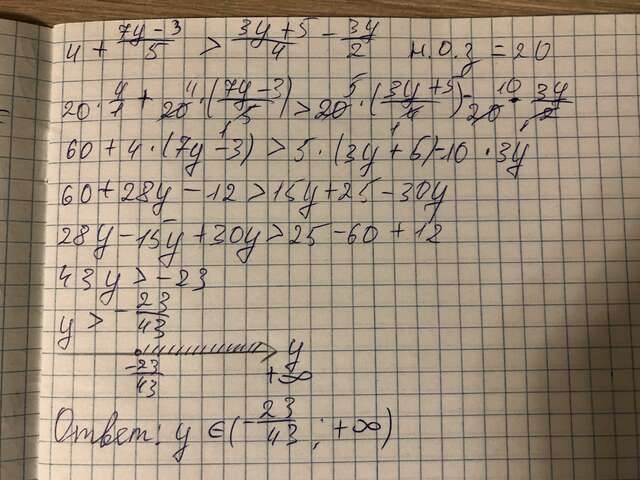 4 + (7y-3)/5 > (3y+5)/4 - 3y/2 Н.О.З = 20
20 · 4/1 + 20 · (7y-3)/5 > 20 · (3y+5)/4 - 20 · 3y/2
60 + 4 · (7y-3) > 5 · (3y+5) - 10 · 3y
60 + 28y - 12 > 15y + 25 - 30y
28y - 15y + 30y > 25 - 60 + 12
43y > -23
y > -23/43
-23/43 +∞ y
Ответ: y ∈ (-23/43 ; +∞)